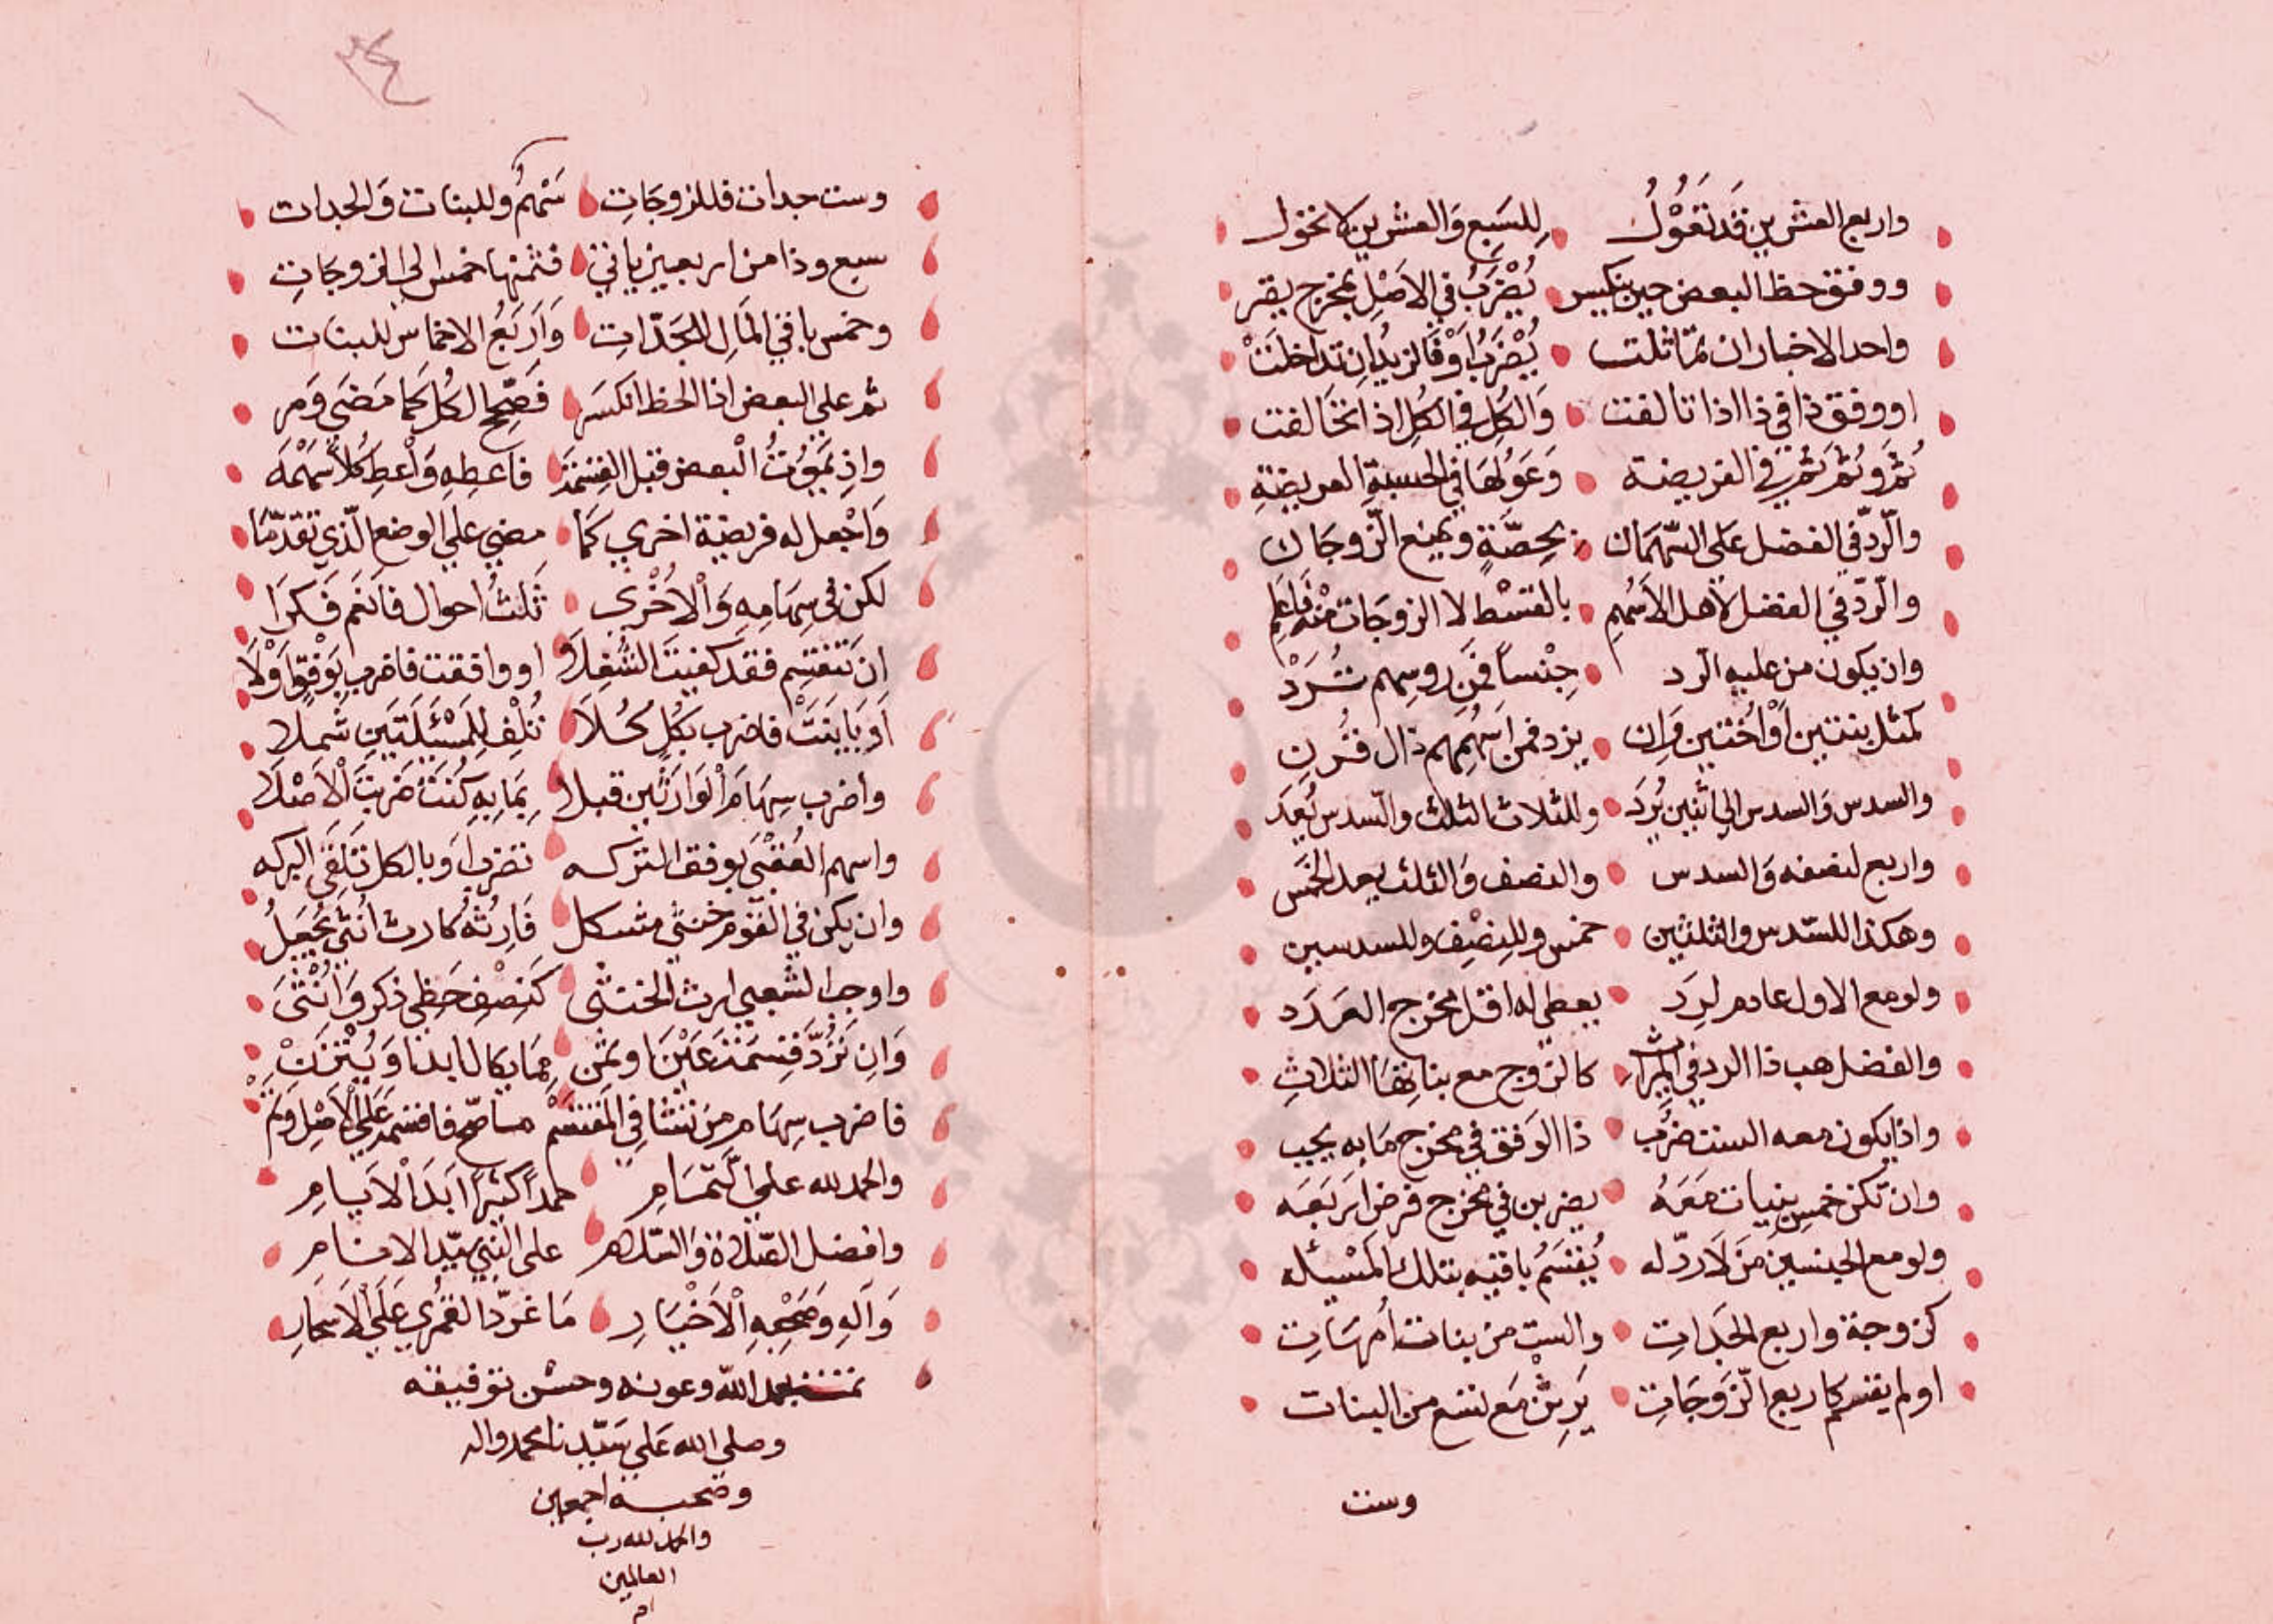 واربع العشرين قد تَعُولُ للسبع والعشرين لا تحول
ووفق حظ البعض حين ينكسر يُضْرَبُ في الاصل بمخرج يقر
واحد الاخبار ان تماثلت يُضْرَبُ اوفازيدان تداخلت
او وفق ذا في ذا اذا تالفت والكل في الكل اذا تخالفت
ثم وثم ثم في الفريضه وعولها في الحسبة العريضة
والردّ في الفضل على السهمان بحصّةٍ ويمنع الزوجان
والردّ في الفضل لاهل الاسهم بالقسط لا الزوجات منه فاعلم
وان يكون من عليه الرد جنساً فمن روسهم تُرَدْ
كمثل بنتين او اختين وان يزد فمن اسهمهم ذال قُرِن
والسدس والسدس الى اثنين يُرَد وللثلاث الثلث والسدس يُعَد
واربع لنصفه والسدس والنصف والثلث بعد الخمس
وهكذا للسّدس والثلثين خمس وللنصف وللسدسين
ولو مع الاول عادم لرد يعطى له اقل مخرج العدد
والفضل هب ذا الرد في الميراث كالزوج مع بناتها الثلاث
واذا يكون معه الست ضرب ذا الوفق في مخرج ما به يجب
وان تكن خمس بنيات معه يضربن في مخرج فرض اربعه
ولو مع الجنسين من لا ردّ له يُقْسَمُ باقيه بتلك المسئله
كزوجة واربع الجدات والست من بنات امهات
او لم يقسم كاربع الزوجات يرثن مع تسع من البنات
وست
٣٤
وست جدات فللزوجات سهم وللبنات والجدات
سبع وذا من اربعين ياتي فثمنها خمس الى الزوجات
وخمس باقي المال للجدّات واربع الاخماس للبنات
ثم على البعض اذا الحظ انكسر فصحّح الكل كما مضى ومر
واذ يموت البعض قبل القسمة فاعطه واعط كلا سهمه
واجعل له فريضة اخري كما مضي علي الوضع الّذي تقدّما
لكن في سهامه والاخري ثلث احوال فانعم فكرا
ان تنقسم فقد كفيت الشغلا او وافقت فاضرب بوفق اولا
او باينت فاضرب بكل كلا تُلْفِ للمسئلتين شملا
واضرب سهام الوارثين قبلا بما به كنت ضربت الاصلا
واسهم العقبى بوفق التركه تضرب او بالكل تلقى البركه
وان يكن في القوم خنثي مشكل فارثه كارث انثي يجعل
واوجب الشعبي ارث الخنثى كنصف حظي ذكر وانثى
وان ترد قسمة عين او ثمن مما يكال ابدا ويتزن
فاضرب سهام من تشا في المقتسم ما صح فاقسمه على الاصل وتم
والحمد لله علي التّمام حمداً كثيراً ابد الايام
وافضل الصّلاة والسّلام على النبي سيّد الانام
وآله وصحبه الاخيار ما غرّد القمري على الاسحار
تمت بحمد الله وعونه وحسن توفيقه
وصلي الله علي سيّدنا محمد واله
وصحبه اجمعين
والحمد لله رب
العالمين
ام